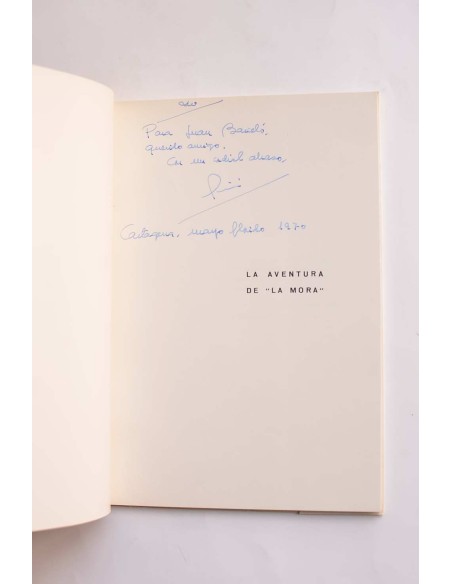 Para Juan Barceló,
querido amigo,
Con un cordial abrazo,
Cartagena, mayo 1970
LA AVENTURA
DE "LA MORA"